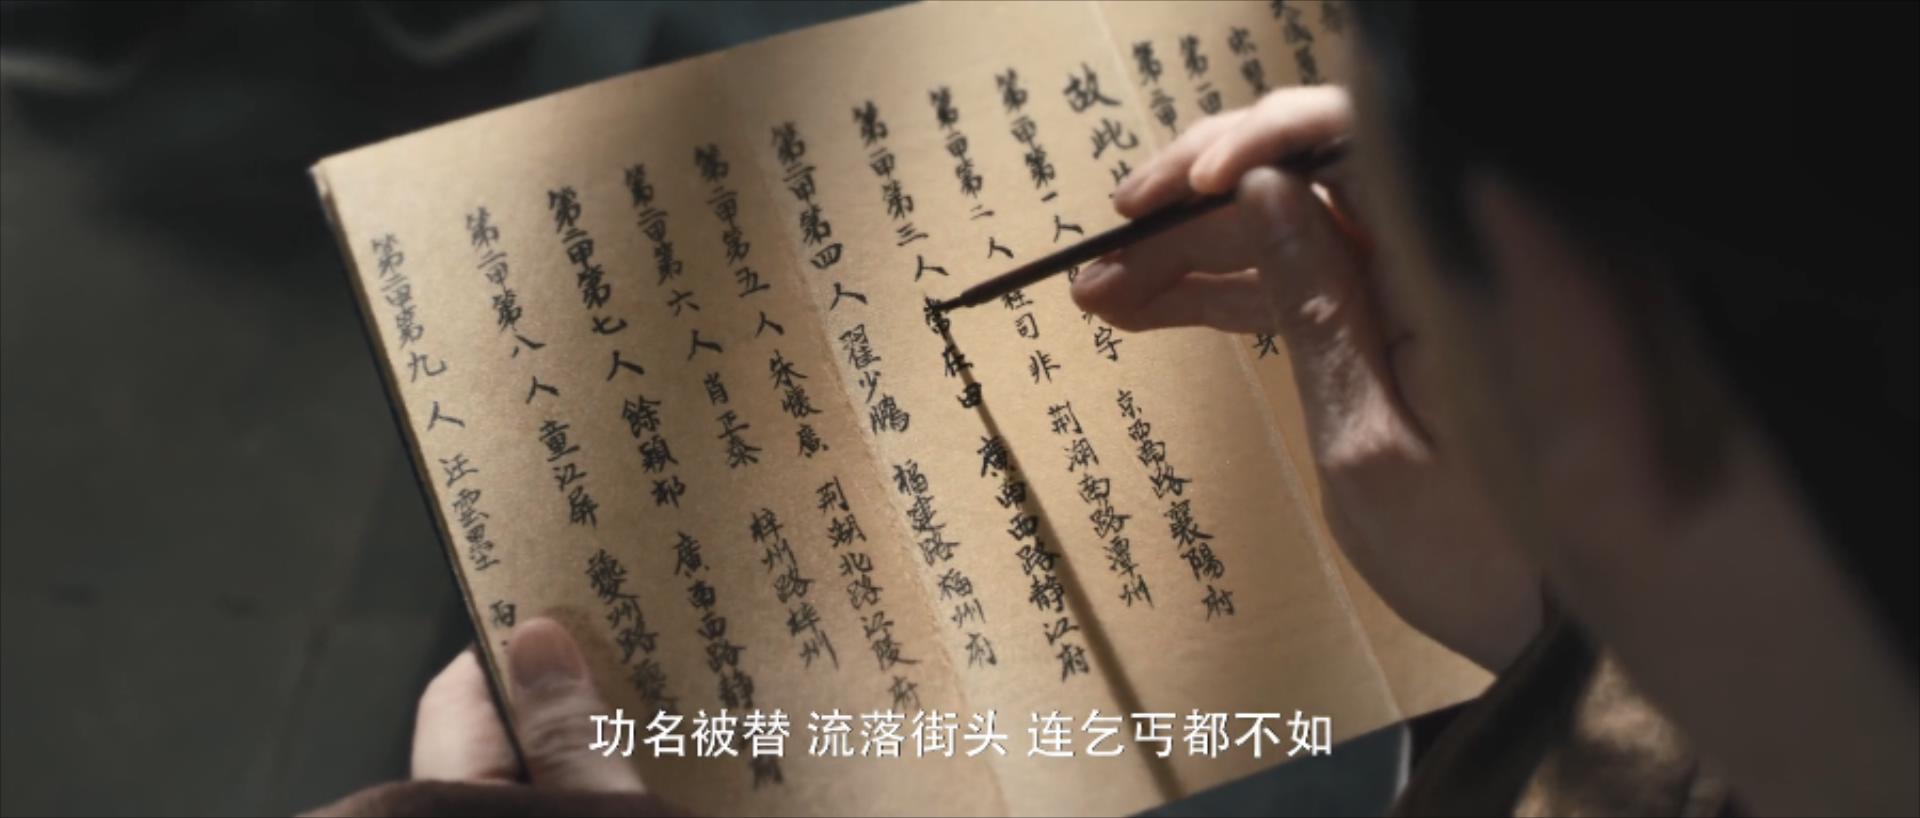 故此
第二甲第一人 京西南路襄陽府
第二甲第二人 杜司非 荆湖南路潭州
第二甲第三人 常在田 廣南西路静江府
第二甲第四人 翟少鵬 福建路福州府
第二甲第五人 朱懷廣 荆湖北路江陵府
第二甲第六人 肖正泰 梓州路梓州
第二甲第七人 餘穎邨 廣南西路静
第二甲第八人 童江屏 夔州路夔
第二甲第九人 汪雲墨
功名被替 流落街头 连乞丐都不如